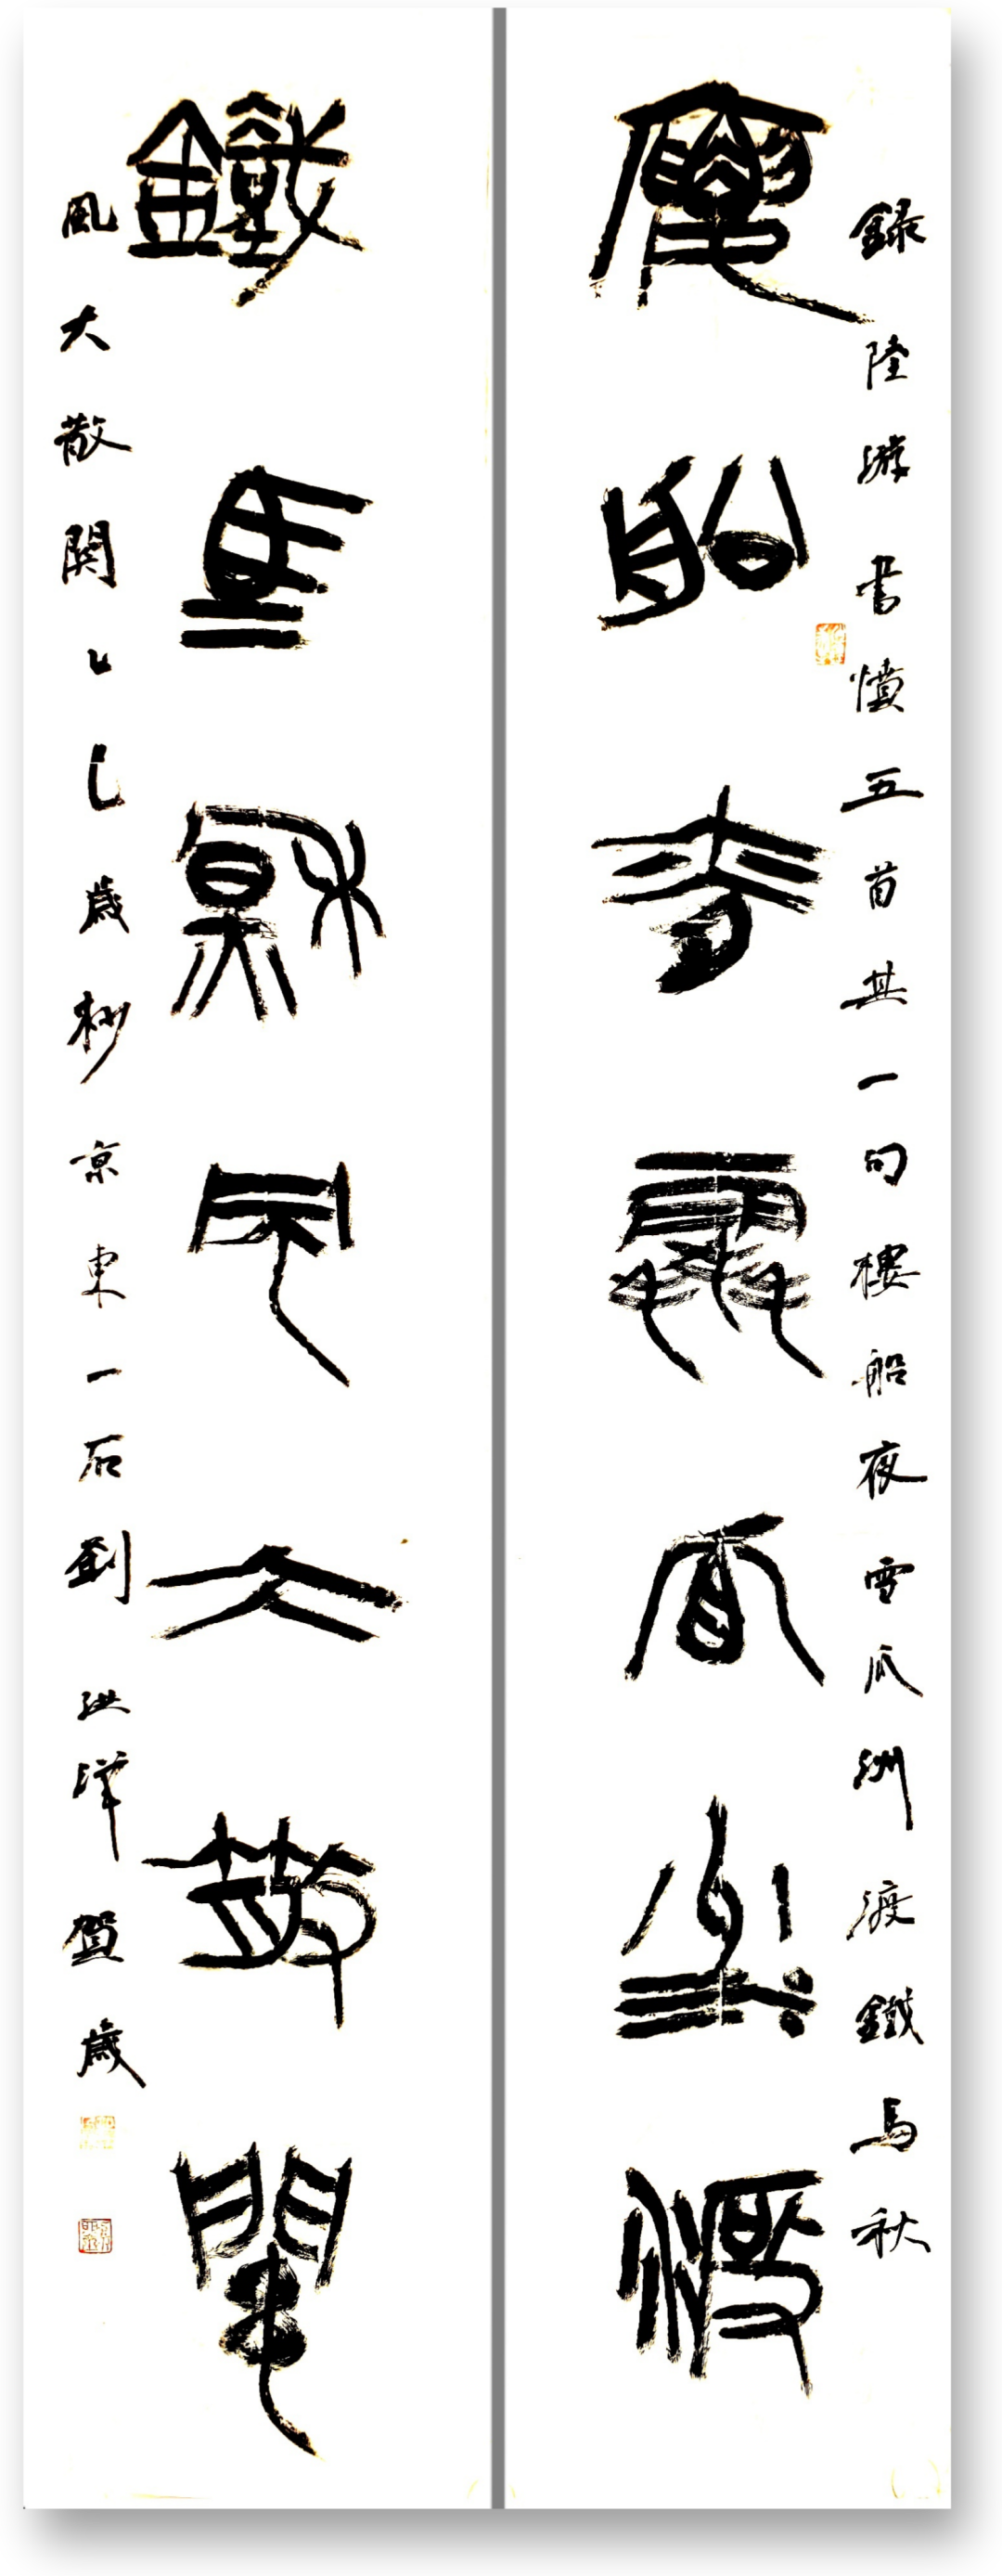 錄陸游書憤五首其一句樓船夜雪瓜洲渡鐵馬秋
樓船夜雪瓜洲渡
鐵馬秋風大散關
風大散關乙巳歲杪京東一石劉洪洋賀歲